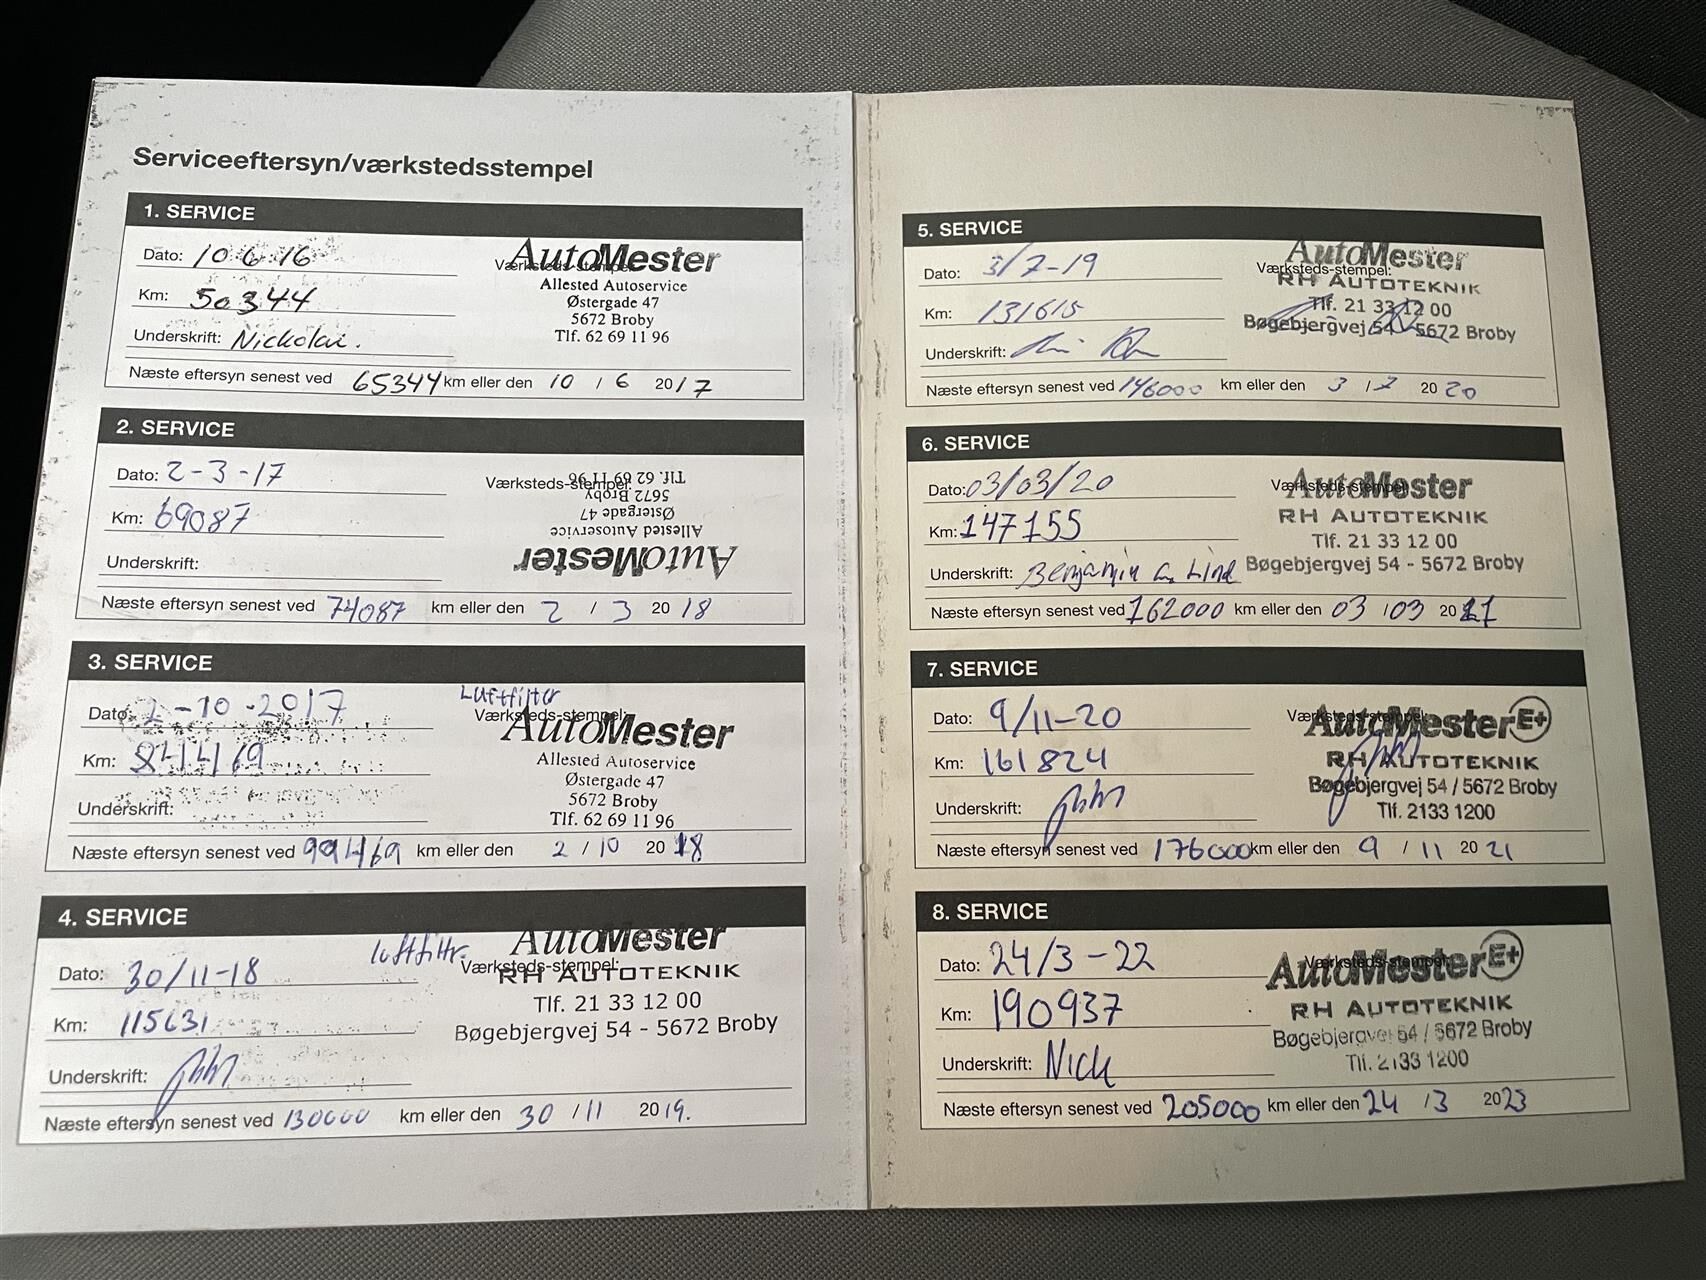 Serviceeftersyn/værkstedsstempel
1. SERVICE
Dato: 10 6 16
Værksteds-stempel:
AutoMester
Allested Autoservice
Østergade 47
5672 Broby
Tlf. 62 69 11 96
Km: 50344
Underskrift: Nickolai.
Næste eftersyn senest ved 65344 km eller den 10 / 6 2017
2. SERVICE
Dato: 2-3-17
Værksteds-stempel:
AutoMester
Allested Autoservice
Østergade 47
5672 Broby
Tlf. 62 69 11 96
Km: 69087
Underskrift:
Næste eftersyn senest ved 74087 km eller den 2 / 3 2018
3. SERVICE
Luftfilter
Dato: 2-10-2017
Værksteds-stempel:
AutoMester
Allested Autoservice
Østergade 47
5672 Broby
Tlf. 62 69 11 96
Km: 84469
Underskrift:
Næste eftersyn senest ved 99469 km eller den 2 / 10 2018
4. SERVICE
luftfiltr.
Dato: 30/11-18
Værksteds-stempel:
AutoMester
RH AUTOTEKNIK
Tlf. 21 33 12 00
Bøgebjergvej 54 - 5672 Broby
Km: 115631
Underskrift:
Næste eftersyn senest ved 130000 km eller den 30 / 11 2019.
5. SERVICE
Dato: 3/7-19
Værksteds-stempel:
AutoMester
RH AUTOTEKNIK
Tlf. 21 33 12 00
Bøgebjergvej 54 - 5672 Broby
Km: 131615
Underskrift:
Næste eftersyn senest ved 146000 km eller den 3 / 7 2020
6. SERVICE
Dato: 03/03/20
Værksteds-stempel:
AutoMester
RH AUTOTEKNIK
Tlf. 21 33 12 00
Bøgebjergvej 54 - 5672 Broby
Km: 147155
Underskrift: Benjamin G. Lind
Næste eftersyn senest ved 162000 km eller den 03 / 03 2021
7. SERVICE
Dato: 9/11-20
Værksteds-stempel:
AutoMester E+
RH AUTOTEKNIK
Bøgebjergvej 54 / 5672 Broby
Tlf. 2133 1200
Km: 161824
Underskrift:
Næste eftersyn senest ved 176000 km eller den 9 / 11 2021
8. SERVICE
Dato: 24/3-22
Værksteds-stempel:
AutoMester E+
RH AUTOTEKNIK
Bøgebjergvej 54 / 5672 Broby
Tlf. 2133 1200
Km: 190937
Underskrift: Nick
Næste eftersyn senest ved 205000 km eller den 24 / 3 2023